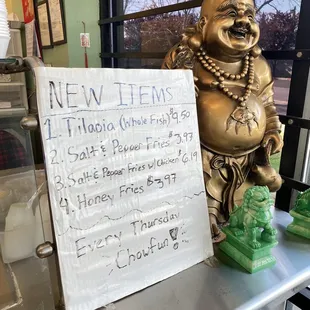 NEW ITEMS
1. Tilapia (Whole Fish) $9.50
2. Salt & Pepper Fries $3.97
3. Salt & Pepper Fries w/ Chicken 6.19
4. Honey Fries $3.97
Every Thursday
Chowfun!